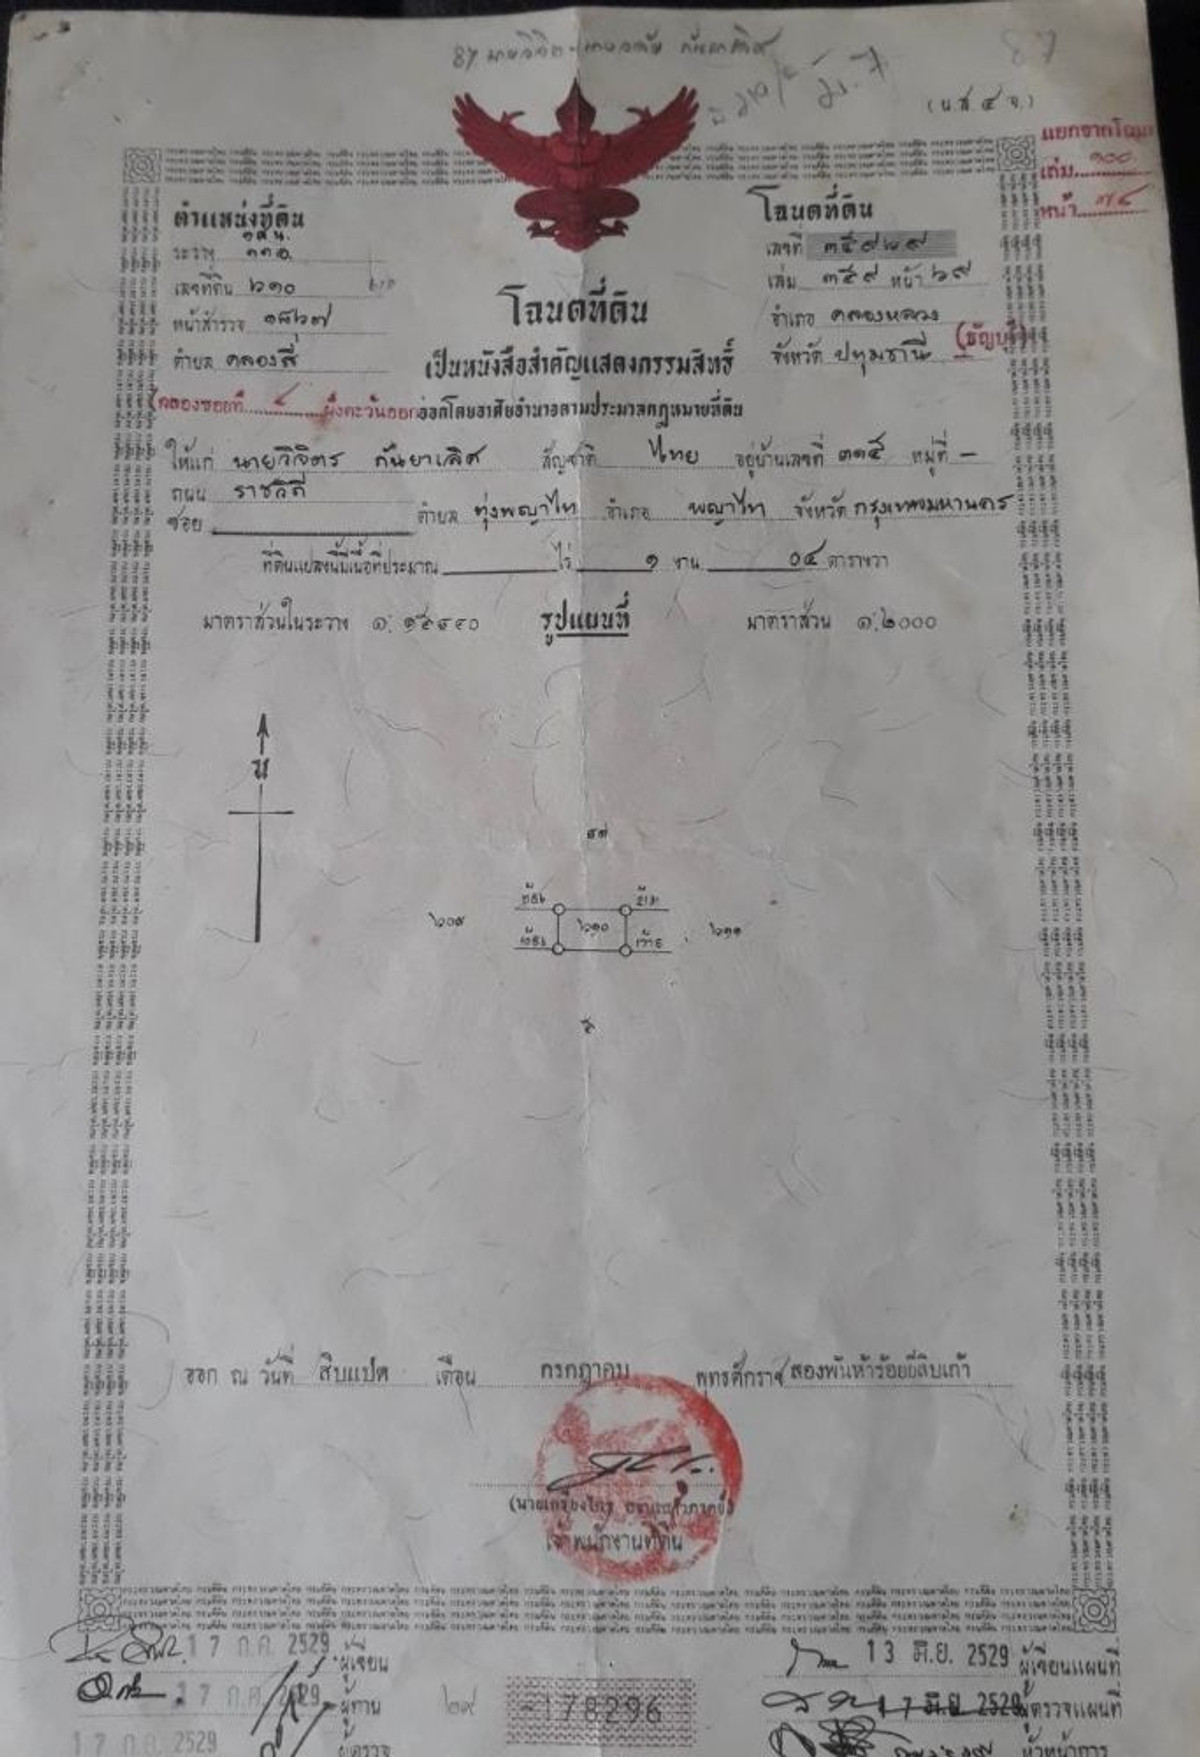 (น.ส.๔ จ.)
แยกจากโฉนด
เล่ม ๑๐๐
หน้า
ตำแหน่งที่ดิน
ระวาง
เลขที่ดิน ๖๑๐
หน้าสำรวจ
ตำบล คลองสี่
โฉนดที่ดิน
เลขที่ ๓๕๙๒๙
เล่ม ๓๕๙ หน้า ๒๙
อำเภอ คลองหลวง
จังหวัด ปทุมธานี (ธัญบุรี)
โฉนดที่ดิน
เป็นหนังสือสำคัญแสดงกรรมสิทธิ์
(คลองซอยที่ ๔ ฝั่งตะวันออก ออกโดยอาศัยอำนาจตามประมวลกฎหมายที่ดิน
ให้แก่ นายวิจิตร กันยาเลิศ สัญชาติ ไทย อยู่บ้านเลขที่ ๓๑๕ หมู่ที่ –
ถนน ราชวิถี
ซอย ตำบล ทุ่งพญาไท อำเภอ พญาไท จังหวัด กรุงเทพมหานคร
ที่ดินแปลงนี้มีเนื้อที่ประมาณ ไร่ ๑ งาน ๐๔ ตารางวา
มาตราส่วนในระวาง รูปแผนที่ มาตราส่วน ๑:๒๐๐๐
น
๖๐๙ ๖๑๐ ๖๑๑
ออก ณ วันที่ สิบแปด เดือน กรกฎาคม พุทธศักราช สองพันห้าร้อยยี่สิบเก้า
เจ้าพนักงานที่ดิน
17 ก.ค. 2529 ผู้เขียน
17 ก.ค. 2529 ผู้ทาน
17 ก.ค. 2529 ผู้ตรวจ
๒๙ 178296
13 มิ.ย. 2529 ผู้เขียนแผนที่
17 มิ.ย. 2529 ผู้ตรวจแผนที่
หัวหน้าการ